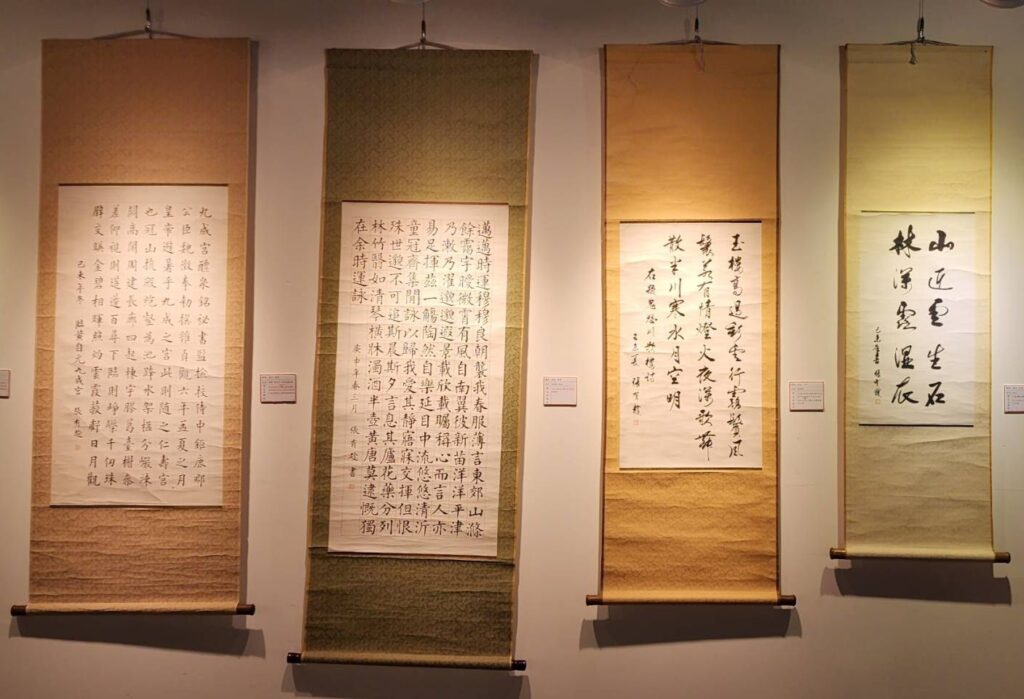 九成宫醴泉銘秘書監檢校侍中鉅鹿郡
公臣魏徵奉勑撰維貞觀六年孟夏之月
皇帝避暑乎九成之宮此則随之仁壽宮
也冠山抗殿絕壑為池跨水架楹分巖竦
闕高閣周建長廊四起棟宇膠葛臺榭參
差仰視則迢遰百尋下臨則崢嶸千仞珠
璧交暎金碧相暉照灼雲霞蔽虧日月觀
己未年冬 臨黄自元九成宫 張有
邁邁時運穆穆良朝襲我春服薄言東郊山滌
餘靄宇曖微霄有風自南翼彼新苗洋洋平津
乃漱乃濯邈邈遐景載欣載矚稱心而言人亦
易足揮茲一觴陶然自樂延目中流悠悠清沂
童冠齊集閒詠以歸我愛其靜寤寐交揮但恨
殊世邈不可追斯晨斯夕言息其廬花藥分列
林竹翳如清琴橫牀濁酒半壺黃唐莫逮慨獨
在余時運詠
庚申年春三月 張有 書
玉樓高過彩雲行霧鬢風
鬟若有情燈火夜深歌舞
散半川寒水月空明
山近雲生石
林深露濕衣